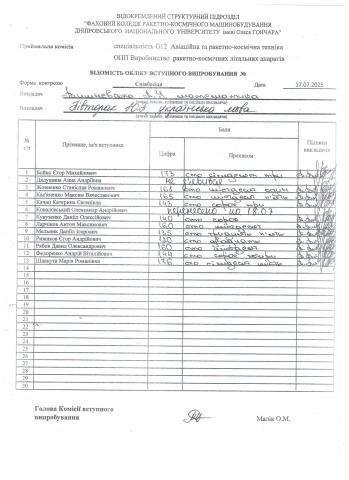 ВІДОКРЕМЛЕНИЙ СТРУКТУРНИЙ ПІДРОЗДІЛ
"ФАХОВИЙ КОЛЕДЖ РАКЕТНО-КОСМІЧНОГО МАШИНОБУДУВАННЯ
ДНІПРОВСЬКОГО НАЦІОНАЛЬНОГО УНІВЕРСИТЕТУ імені Олеся ГОНЧАРА"
Приймальна комісія спеціальність G12 Авіаційна та ракетно-космічна техніка
ОПП Виробництво ракетно-космічних літальних апаратів
ВІДОМІСТЬ ОБЛІКУ ВСТУПНОГО ВИПРОБУВАННЯ №
Форма контролю Співбесіда Дата 17.07.2025
Викладач математика
Викладач українська мова
№ з/п Прізвище, ім'я вступника Бали Підписи викладачів
Цифра Прописом
1 Бойко Єгор Михайлович 173 сто сімдесят три
2 Анна Андріївна не з'явилась
3 Станіслав Романович 161 сто шістдесят один
4 Максим Вячеславович 165 сто шістдесят п'ять
5 Катерина Євгенівна 143 сто сорок три
6 Ковалевський Олександр Андрійович перенесено на 18.07
7 Даніїл Олексійович 140 сто сорок
8 Антон Максимович 160 сто шістдесят
9 Мельник Даніїл Ігорович 135 сто тридцять п'ять
10 Єгор Андрійович 120 сто двадцять
11 Рябов Давид Олександрович 160 сто шістдесят
12 Федоренко Андрій Віталійович 144 сто сорок чотири
13 Марія Романівна 176 сто сімдесят шість
14
15
16
17
18
19
20
21
22
23
24
25
26
27
28
29
30
Голова Комісії вступного
випробування Малік О.М.